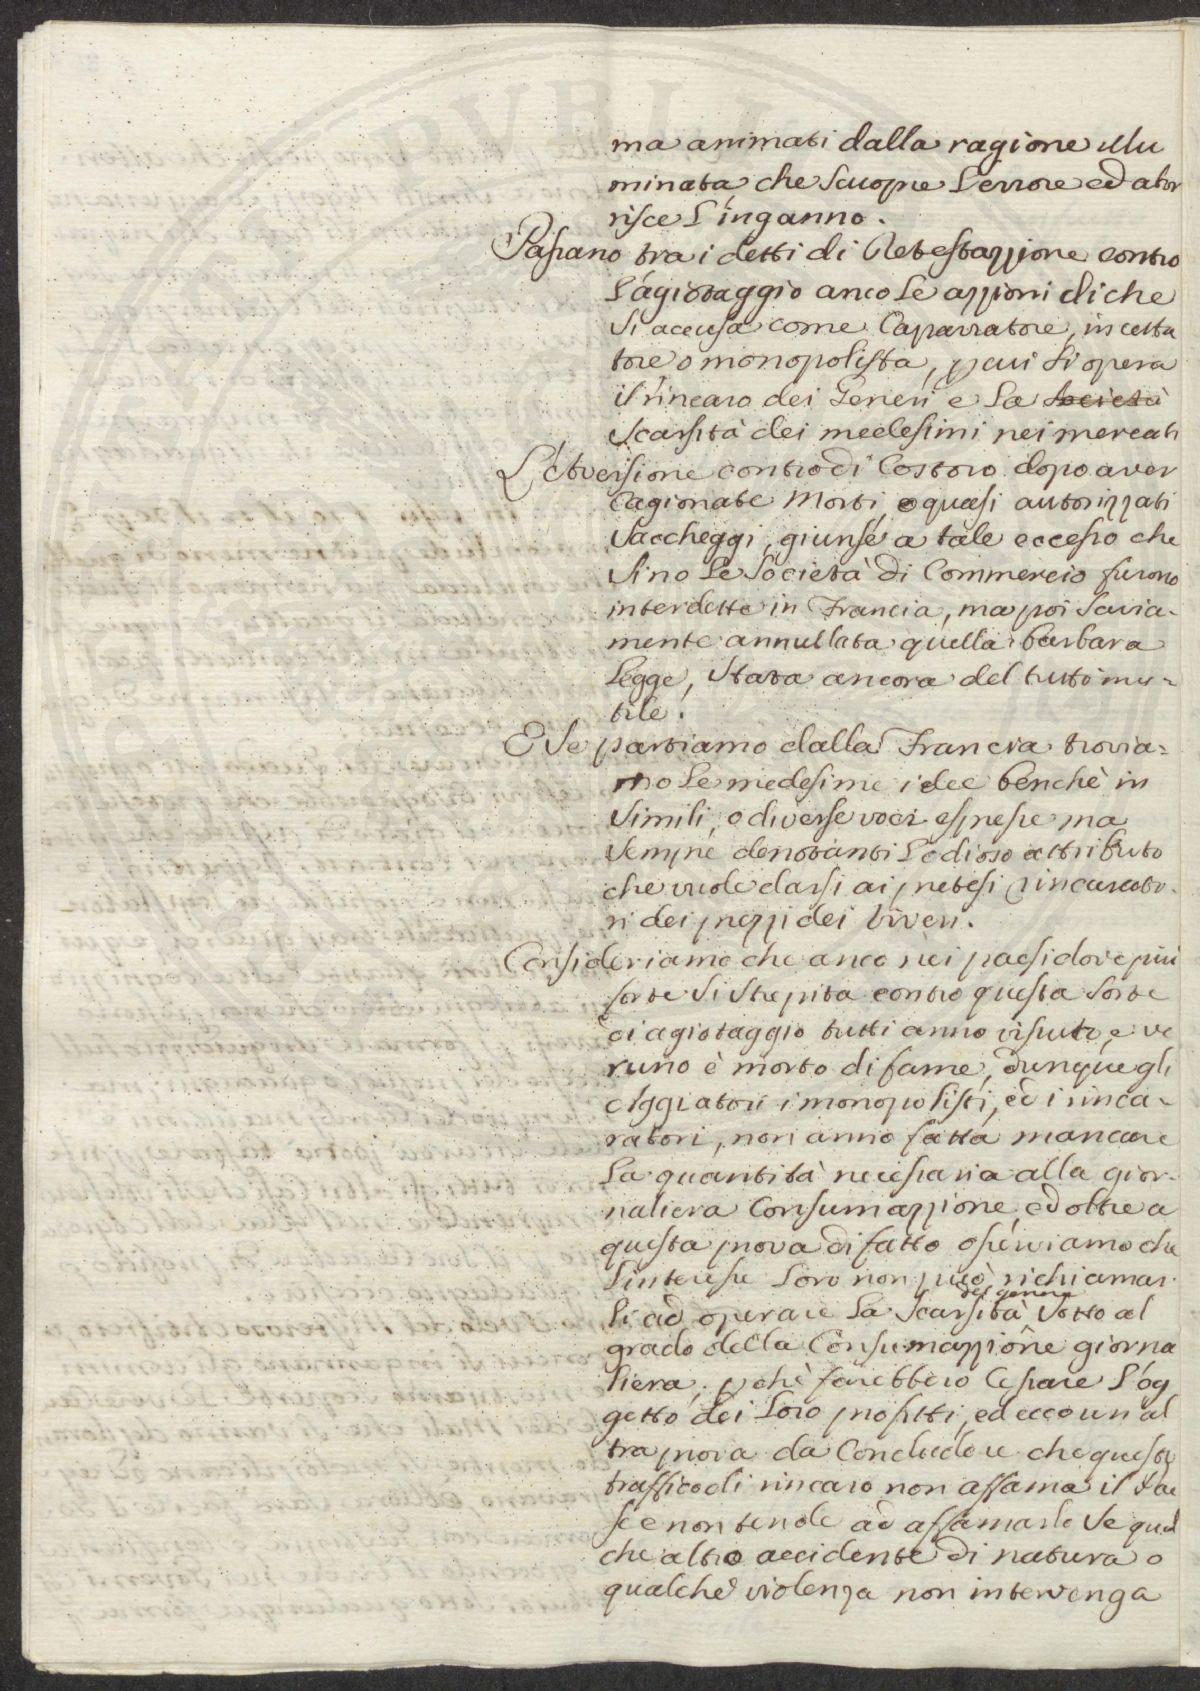 ma animati dalla ragione illu
minata, che scuopre l'errore ed abor
risce l'inganno.
Passano tra i detti di Detestazzione contro
l'agiotaggio anco le azzioni di che
si accusa come Caparratore, incetta
tore o monopolista, p cui si opera
il rincaro dei Generi e la società
scarsità dei medesimi nei mercati
L'Avversione contro di Costoro dopo aver
Cagionate Morti, e quasi autorizzati
saccheggi, giunse a tale eccesso che
sino le società di Commercio furono
interdette in Francia, ma poi savia-
mente annullata quella barbara
legge, stata ancora del tutto inu-
tile.
E se partiamo dalla Francia trovia=
mo le medesime idee benchè in
simili, o diverse voci espresse ma
sempre denotanti l'odioso attributo
che vuole darsi ai pretesi rincarato-
ri dei prezzi dei viveri.
Consideriamo che anco nei paesi dove più
forte si strepita contro questa sorte
di agiotaggio tutti anno vissuto, e ve
runo è morto di fame, dunque gli
Aggiatori i monopolisti, ed i rinca-
ratori, non anno fatta mancare
la quantità necessaria alla gior-
naliera Consumazzione, ed oltre a
questa prova di fatto osserviamo che
l'interesse loro non può richiamar-
del genere
li ad operare la scarsità sotto al
grado della Consumazzione giorna
liera, p chè farebbero Cessare l'og
getto dei loro profitti, ed ecco un al
tra prova da Concludere che questo
traffico di rincaro non affama il Pae
se e non tende ad affamarlo se qual
che altro accidente di natura o
qualche violenza non intervenga